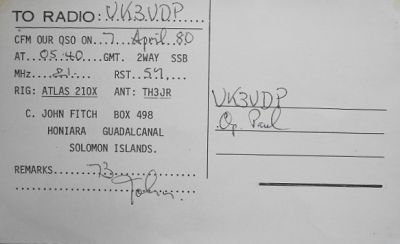 TO RADIO: VK3VDP
CFM OUR QSO ON...7 April 80
AT...05.40....GMT. 2WAY SSB
MHZ....21..... RST..59...
RIG: ATLAS 210X ANT: TH3JR
C. JOHN FITCH BOX 498
HONIARA GUADALCANAL
SOLOMON ISLANDS.
REMARKS.......73...............
John
VK3VDP
Op. Paul